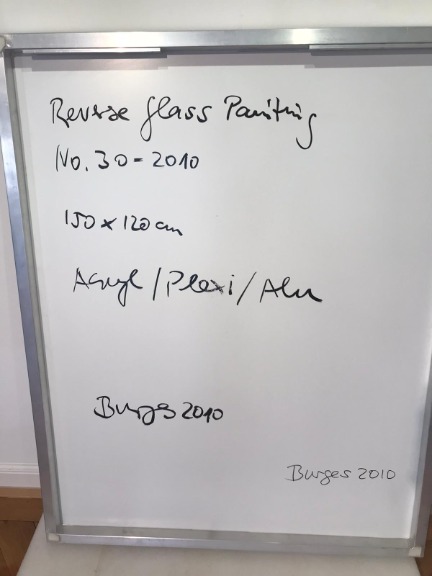 Reverse Glass Painting
No. 30 - 2010
150 x 120 cm
Acryl / Plexi / Alu
Burges 2010
Burges 2010